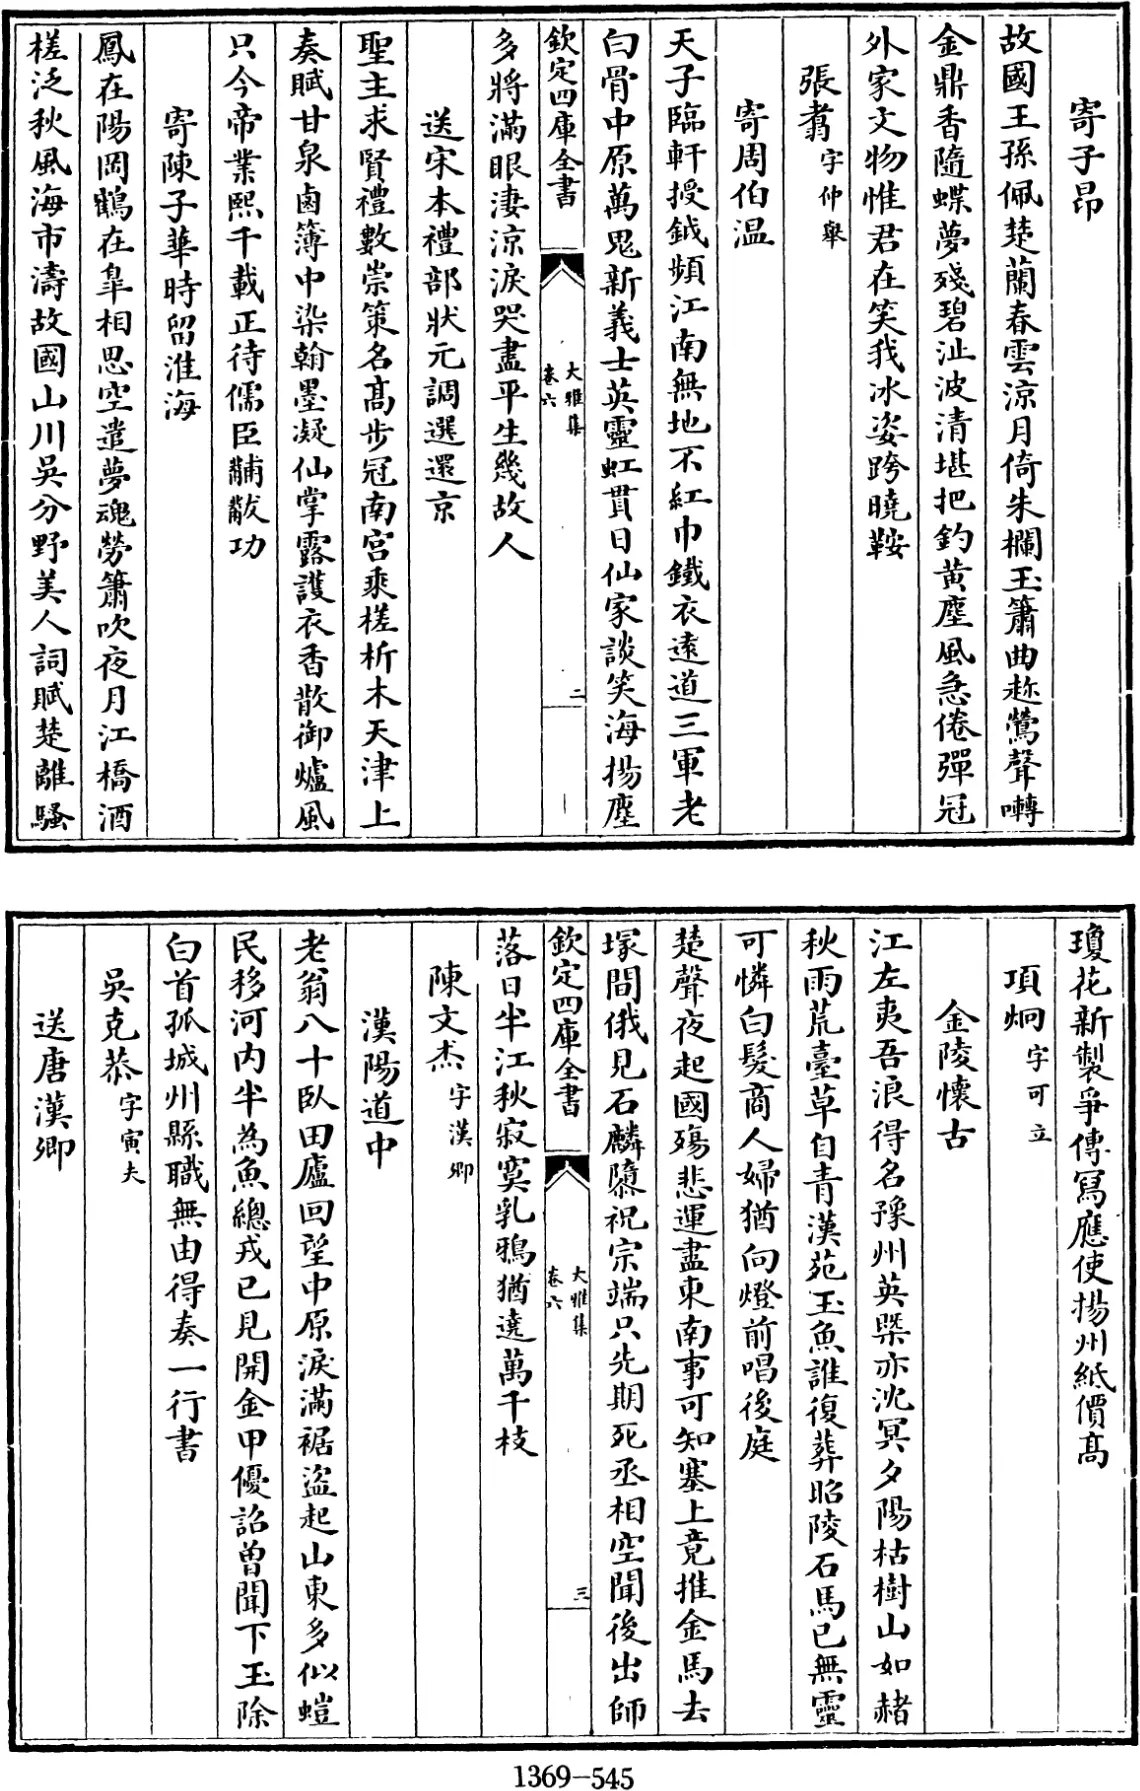 寄子昂
故國王孫佩楚蘭春雲涼月倚朱欄玉簫曲趂鶯聲囀
金鼎香隨蝶夢殘碧沚波清堪把釣黄塵風急倦彈冠
外家文物惟君在笑我冰姿跨曉鞍
張翥字仲舉
寄周伯温
天子臨軒授鉞頻江南無地不紅巾鐵衣逺道三軍老
白骨中原萬鬼新義士英靈虹貫日仙家談笑海揚塵
欽定四庫全書
大雅集
卷六
二
多將滿眼凄涼淚哭盡平生幾故人
送宋本禮部狀元調選還京
聖主求賢禮數崇策名髙步冠南宫乘槎析木天津上
奏賦甘泉鹵簿中染翰墨凝仙掌露護衣香散御爐風
只今帝業熙千載正待儒臣黼黻功
寄陳子華時留淮海
鳳在陽岡鶴在臯相思空遣夢魂勞簫吹夜月江橋酒
槎泛秋風海市濤故國山川吳分野美人詞賦楚離騷
瓊花新製爭傳寫應使揚州紙價髙
項炯字可立
金陵懷古
江左夷吾浪得名豫州英槩亦沈冥夕陽枯樹山如赭
秋雨荒臺草自青漢苑玉魚誰復葬昭陵石馬已無靈
可憐白髮商人婦猶向燈前唱後庭
楚聲夜起國殤悲運盡東南事可知塞上竟推金馬去
塚間俄見石麟隳祝宗端只先期死丞相空聞後出師
欽定四庫全書
大雅集
卷六
三
落日半江秋寂寞乳鴉猶遶萬千枝
陳文杰字漢卿
漢陽道中
老翁八十臥田廬回望中原淚滿裾盜起山東多似螘
民移河内半為魚總戎已見開金甲優詔曽聞下玉除
白首孤城州縣職無由得奏一行書
吳克恭字寅夫
送唐漢卿
1369-545